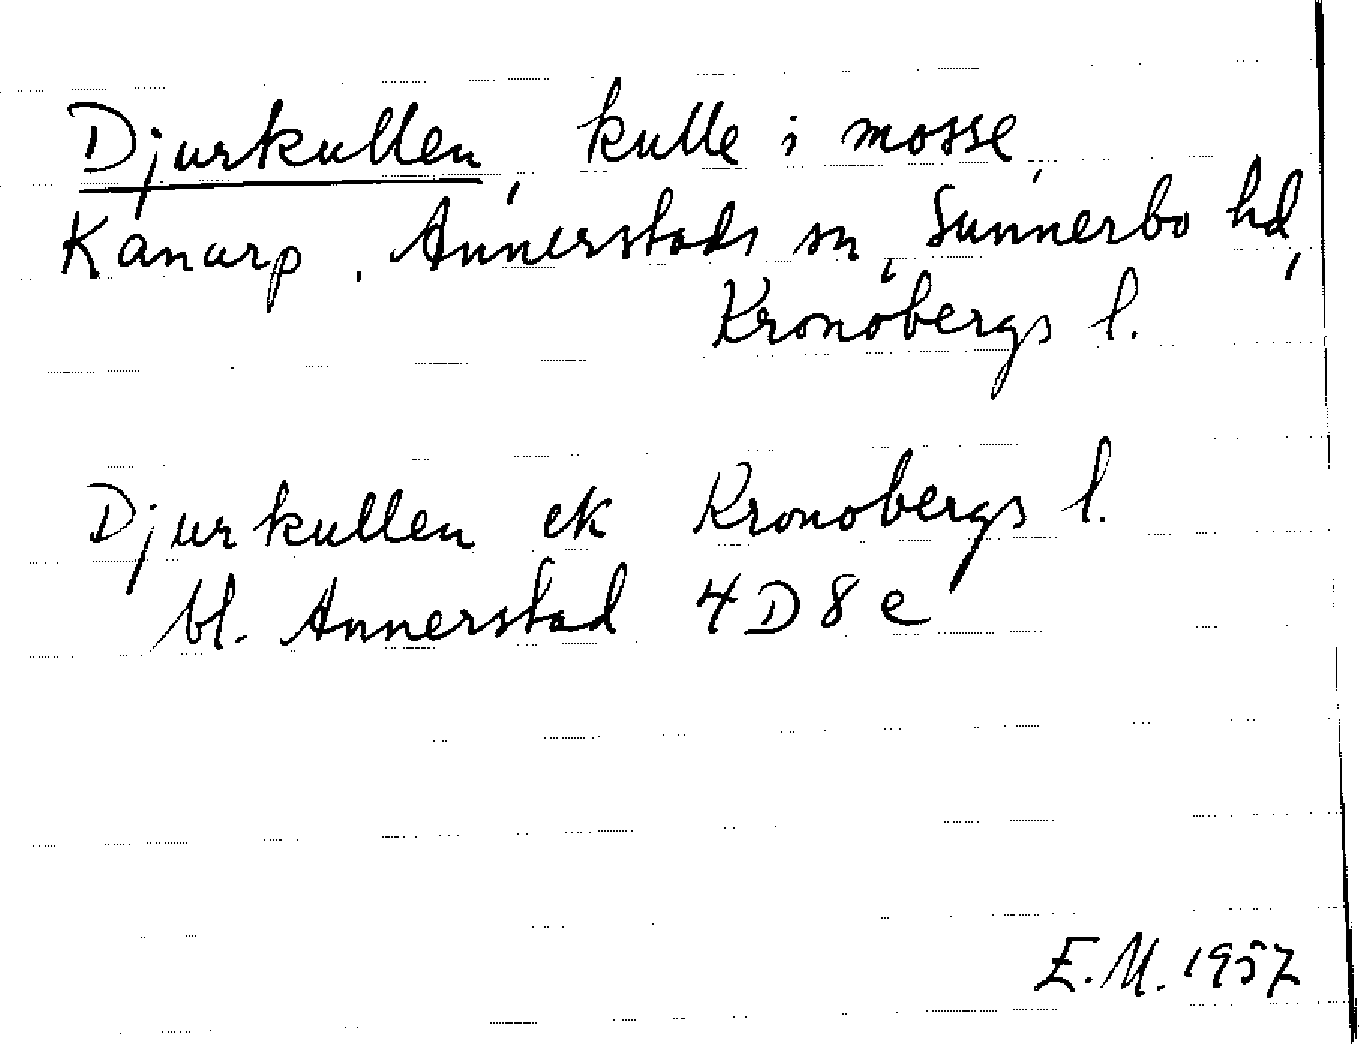 Djurkullen, kulle i mosse,
Kanarp, Annerstads sn, Sunnerbo hd,
Kronobergs l.
Djurkullen ek Kronobergs l.
bl. Annerstad 4D8e
E.M. 1957